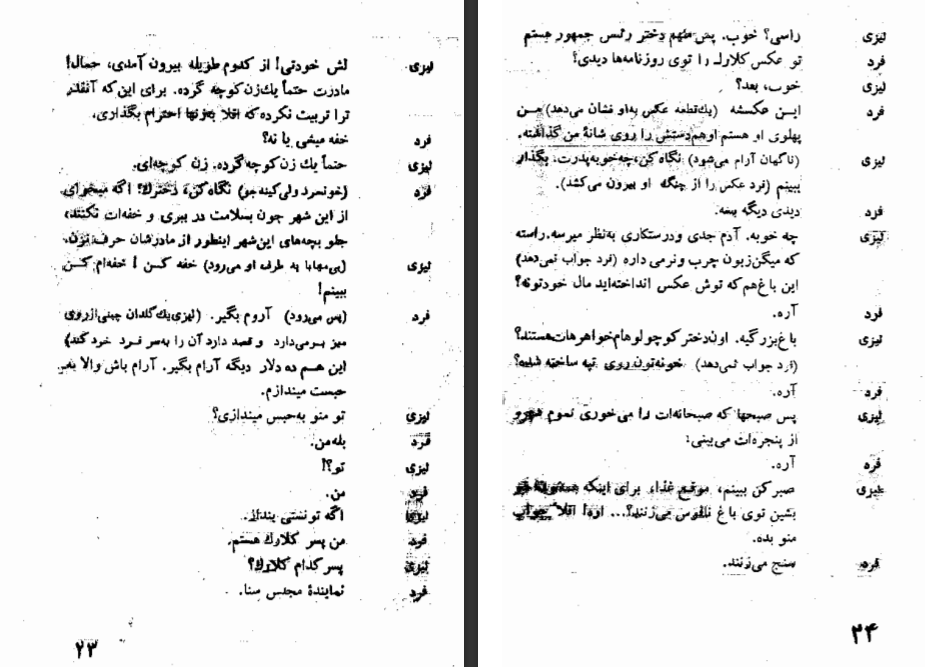 لیزی لش خودتی! از کدوم طویله بیرون آمدی، حمال!
مادرت حتماً یك زن کوچه گرده. برای این که آنقدر
ترا تربیت نکرده که اقلا به زنها احترام بگذاری.
فرد خفه میشی یا نه؟
لیزی حتماً یك زن کوچه گرده. زن کوچه‌ای.
فرد (خونسرد ولی کینه جو) نگاه کن، دخترك؟ اگه میخوای
از این شهر جون بسلامت در ببری و خفه‌ات نکنند،
جلو بچه‌های این شهر اینطور از مادرشان حرف نزن.
لیزی (بی‌مهابا به طرف او می‌رود) خفه کن! خفه‌ام کن
ببینم!
فرد (پس می‌رود) آروم بگیر. (لیزی یك گلدان چینی از روی
میز بر می‌دارد و قصد دارد آن را به‌سر فرد خرد کند)
این هم ده دلار دیگه آرام بگیر. آرام باش والا به
حبست میندازم.
لیزی تو منو به‌حبس میندازی؟
فرد بله من.
لیزی تو؟!
فرد من.
لیزی اگه تونستی بنداز.
فرد من پسر کلارك هستم.
لیزی پسر کدام کلارك؟
فرد نمایندهٔ مجلس سنا.
۲۳
لیزی راسی؟ خوب. پس منهم دختر رئیس جمهور هستم
فرد تو عکس کلارك را توی روزنامه‌ها دیدی؟
لیزی خوب، بعد؟
فرد این عکسشه (یك قطعه عکس به‌او نشان می‌دهد) من
پهلوی او هستم او هم دستش را روی شانهٔ من گذاشته.
لیزی (ناگهان آرام می‌شود) نگاه کن، چه خوبه پدرت. بگذار
ببینم (فرد عکس را از چنگ او بیرون می‌کشد).
فرد دیدی دیگه بسه.
لیزی چه خوبه. آدم جدی و درستکاری به‌نظر میرسه. راسته
که میگن زبون چرب و نرمی داره (فرد جواب نمی‌دهد)
این باغ هم که توش عکس انداخته‌اید مال خودتونه؟
فرد آره.
لیزی باغ بزرگیه. اون دختر کوچولوهام خواهرهات هستند؟
(فرد جواب نمی‌دهد) خونه‌تون روی تپه ساخته شده؟
فرد آره.
لیزی پس صبحها که صبحانه‌ات را می‌خوری تموم شهرو
از پنجره‌ات می‌بینی؛
فرد آره.
لیزی صبر کن ببینم، موقع غذا، برای اینکه
بشین توی باغ ناقوس می‌زنند؟... اقلا جواب
منو بده.
فرد سنج می‌زنند.
۲۴